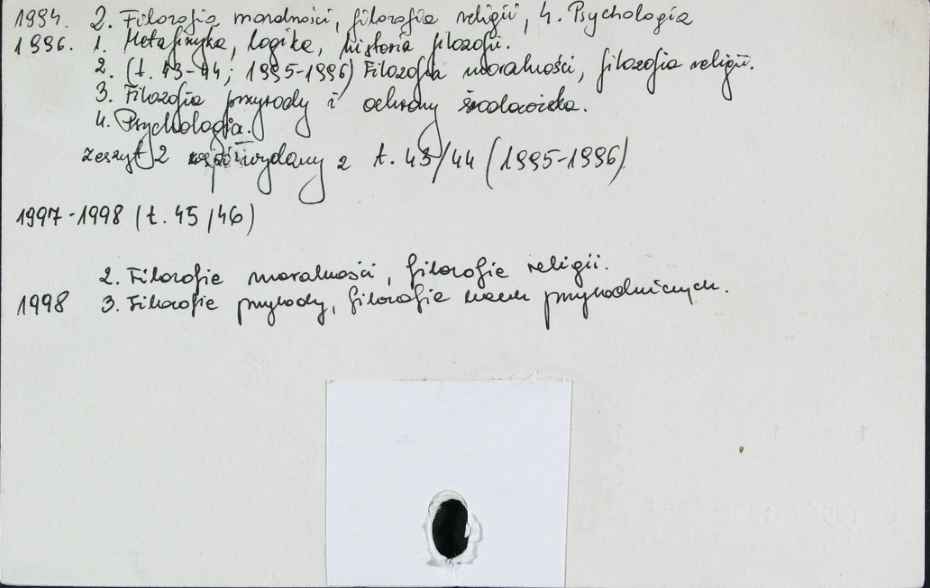 1994. 2. Filozofia moralności, filozofia religii, 4. Psychologia
1996. 1. Metafizyka, logika, historia filozofii.
2. (t. 43-44; 1995-1996) Filozofia moralności, filozofia religii.
3. Filozofia przyrody i ochrony środowiska.
4. Psychologia.
zeszyt 2 współwydany z t. 43/44 (1995-1996)
1997-1998 (t. 45/46)
2. Filozofie moralności, filozofie religii.
1998 3. Filozofie przyrody, filozofie nauk przyrodniczych.